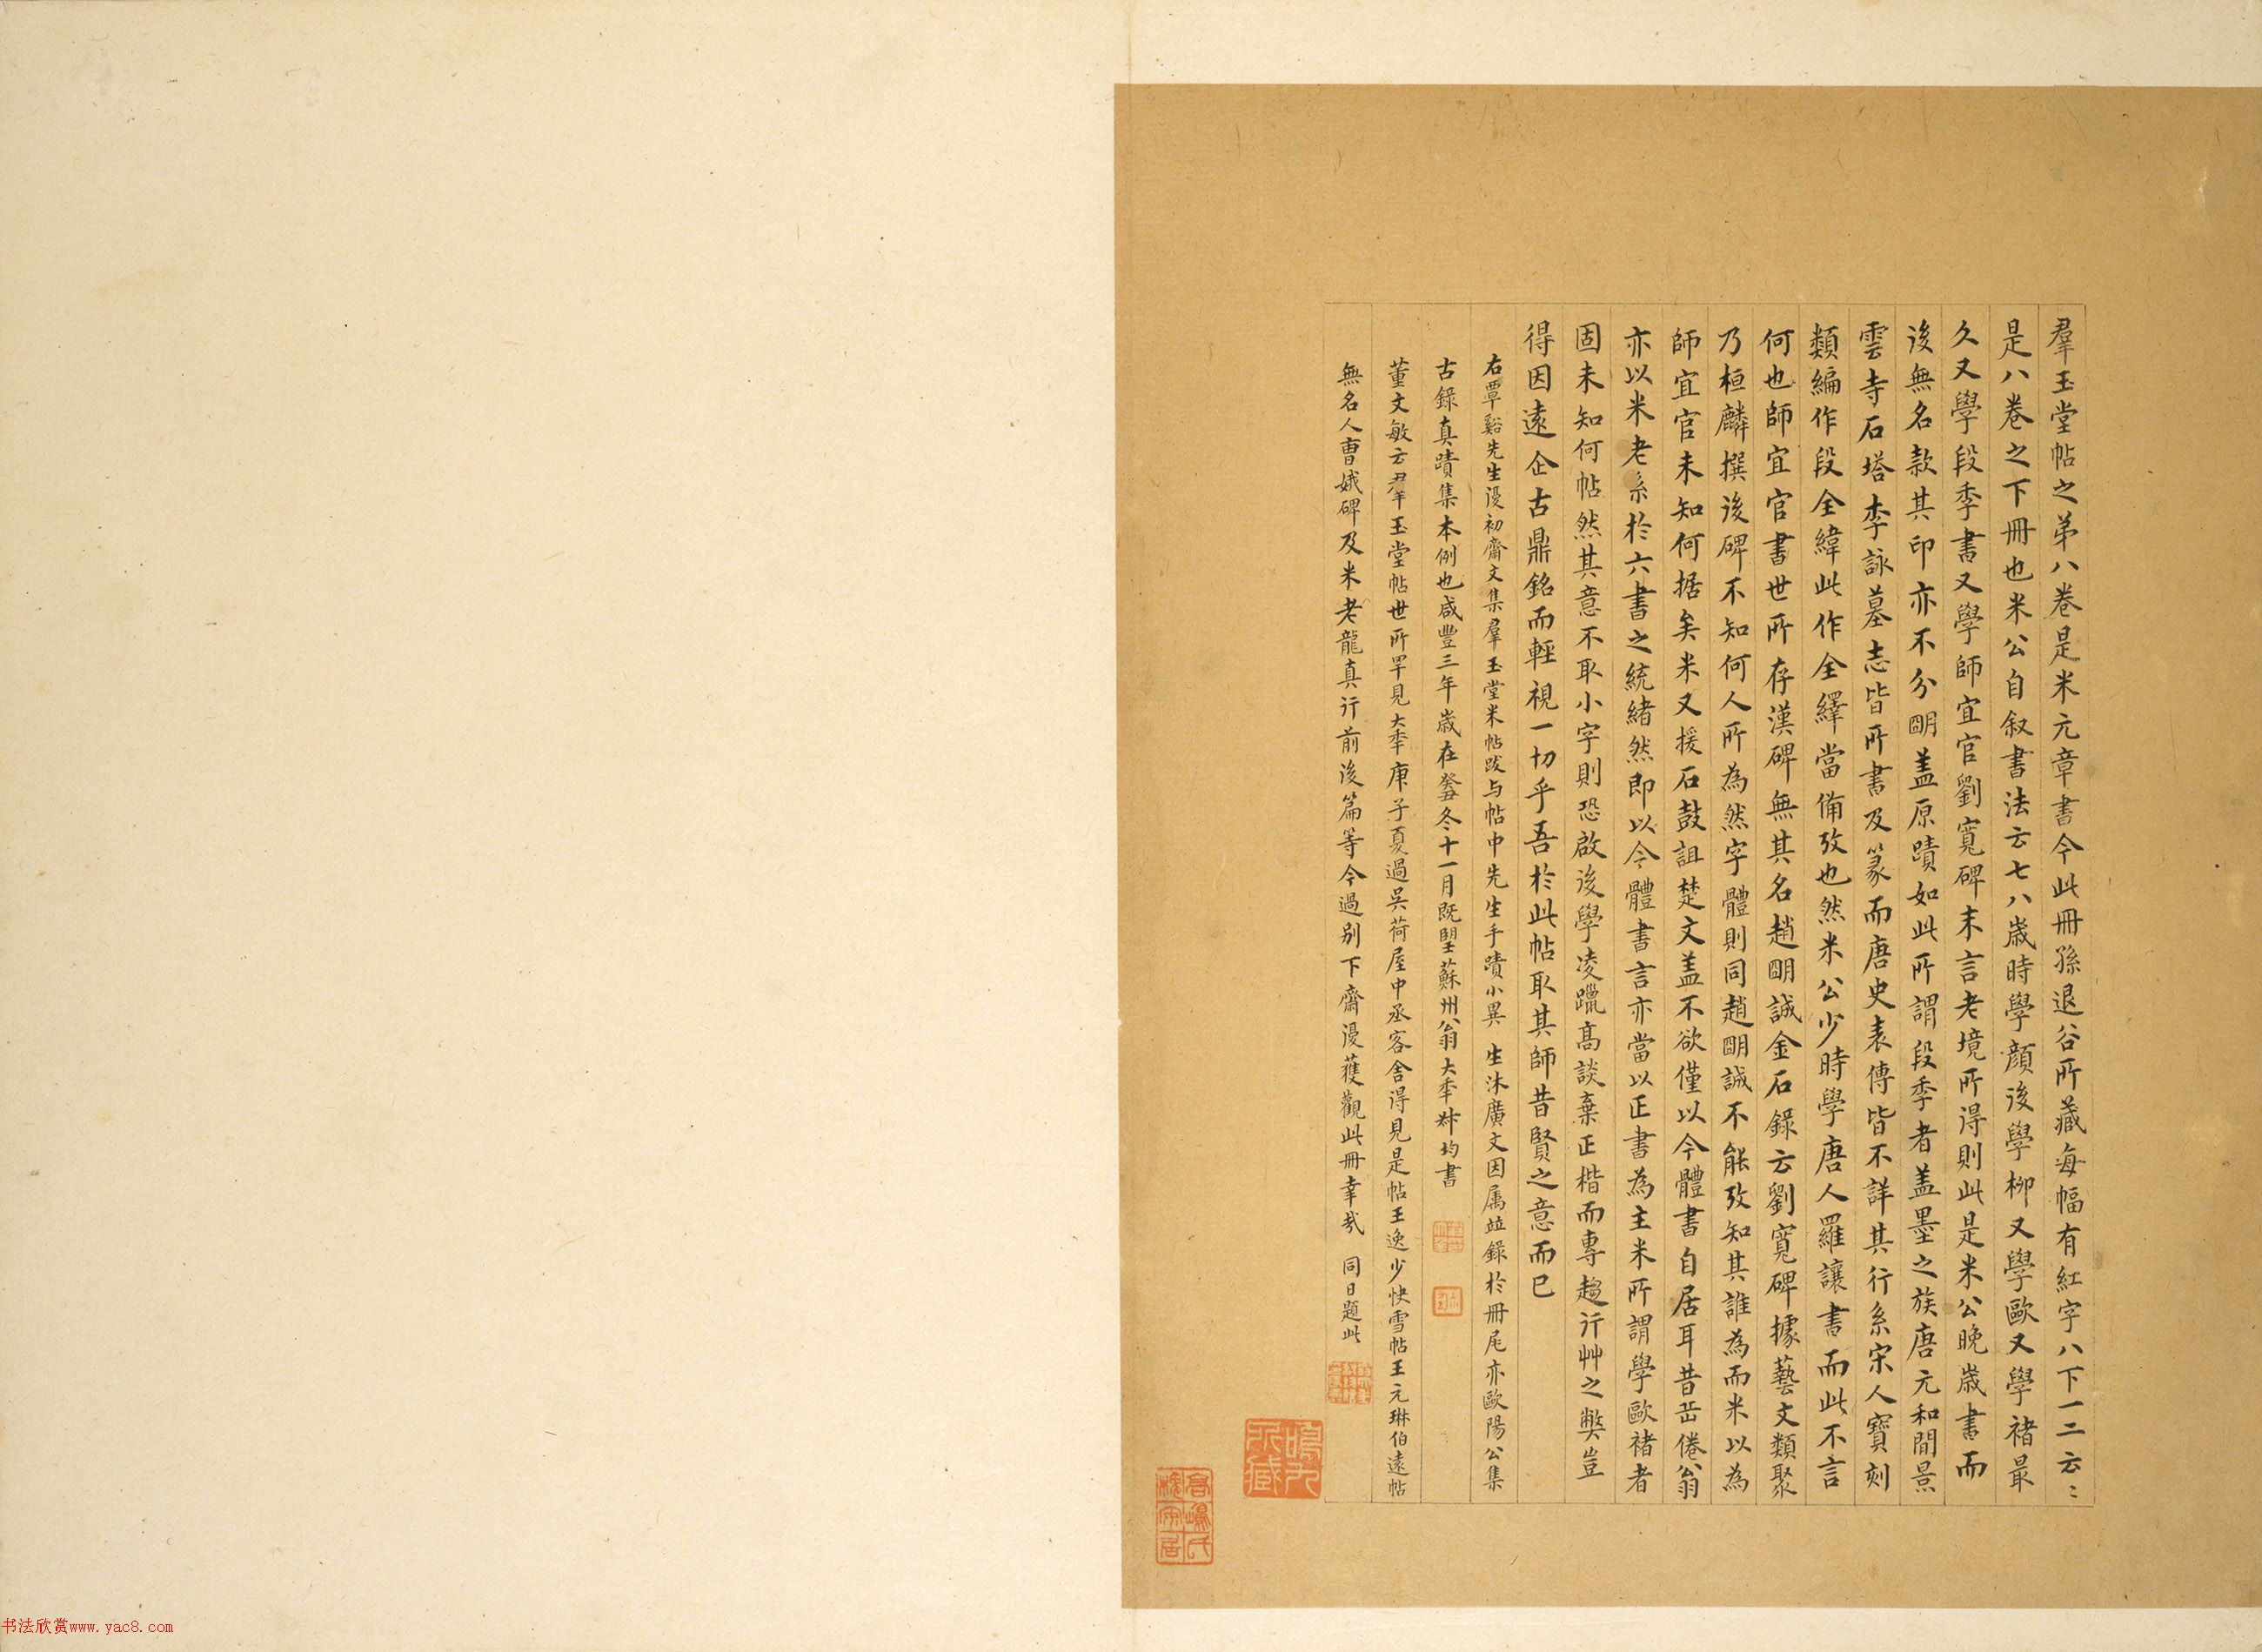 羣玉堂帖之弟八卷是米元章書今此冊孫退谷所藏每幅有紅字八下一二云〻
是八卷之下冊也米公自叙書法云七八歲時學顏後學柳又學歐又學褚最
久又學段季書又學師宜官劉寬碑末言老境所得則此是米公晚歲書而
後無名款其印亦不分明蓋原蹟如此所謂段季者蓋墨之族唐元和間景
雲寺石塔李詠墓志皆所書及篆而唐史表傳皆不詳其行系宋人寶刻
類編作段全緯此作全繹當備攷也然米公少時學唐人羅讓書而此不言
何也師宜官書世所存漢碑無其名趙明誠金石錄云劉寬碑據藝文類聚
乃桓麟撰後碑不知何人所為然字體則同趙明誠不能攷知其誰為而米以為
師宜官未知何据矣米又援石鼓詛楚文蓋不欲僅以今體書自居耳昔岳倦翁
亦以米老系於六書之統緒然即以今體書言亦當以正書為主米所謂學歐褚者
固未知何帖然其意不取小字則恐啟後學凌躐高談棄正楷而專趨行艸之弊豈
得因遠企古鼎銘而輕視一切乎吾於此帖取其師昔賢之意而已
右覃谿先生澓初齋文集羣玉堂米帖跋与帖中先生手蹟小異 生沐廣文因属竝錄於冊尾亦歐陽公集
古錄真蹟集本例也咸豐三年歲在癸丑冬十一月既望蘇州翁大年叔均書
董文敏云羣玉堂帖世所罕見大年庚子夏過吳荷屋中丞客舍得見是帖王逸少快雪帖王元琳伯遠帖
無名人曹娥碑及米老龍真行前後篇等今過別下齋澓獲觀此冊幸哉 同日題此
書法欣賞www.yac8.com